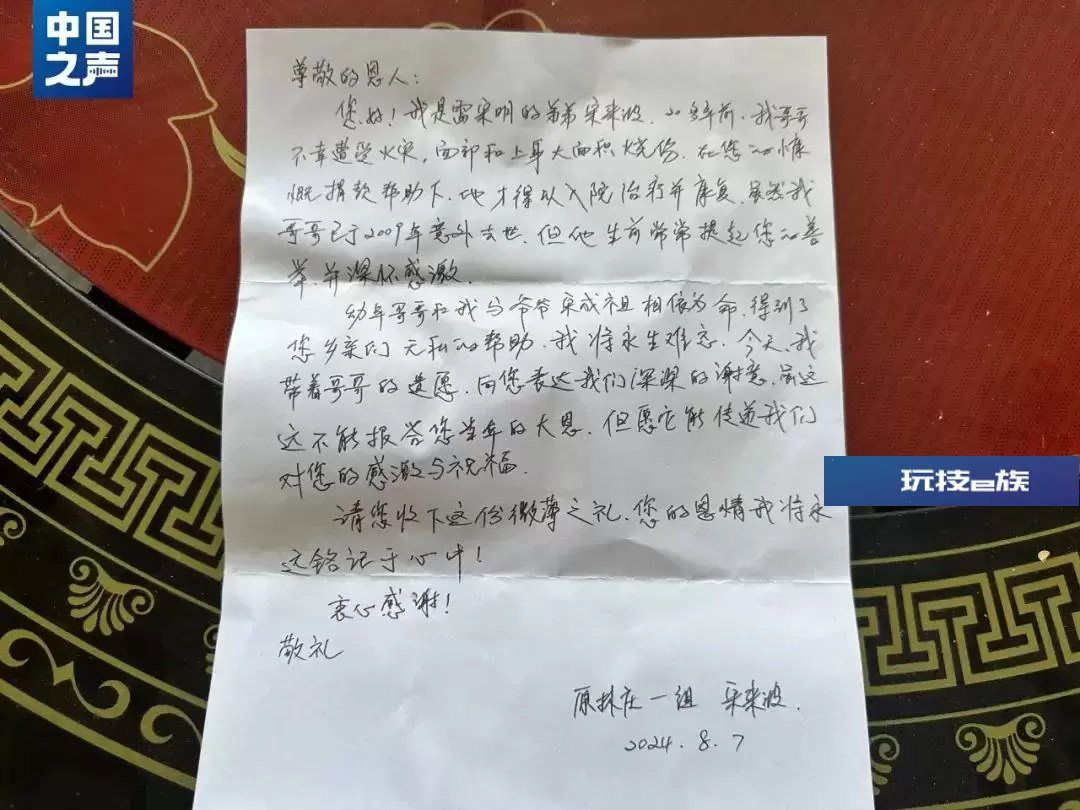 中国之声
尊敬的恩人：
您好！我是雷宋明的弟弟宋来波，20多年前，我哥哥
不幸遭受火灾，面部和上身大面积烧伤，在您的慷
慨捐款帮助下，他才得以入院治疗并康复，虽然我
哥哥已于2009年意外去世，但他生前常常提起您的善
举，并深怀感激。
幼年哥哥和我与爷爷宋成祖相依为命，得到了
您乡亲们无私的帮助，我将永生难忘。今天，我
带着哥哥的遗愿，向您表达我们深深的谢意，虽这
这不能报答您当年的大恩，但愿它能传递我们
对您的感激与祝福。
请您收下这份微薄之礼，您的恩情我将永
远铭记于心中！
衷心感谢！
敬礼
原林庄一组 宋来波
2024.8.7
玩技e族